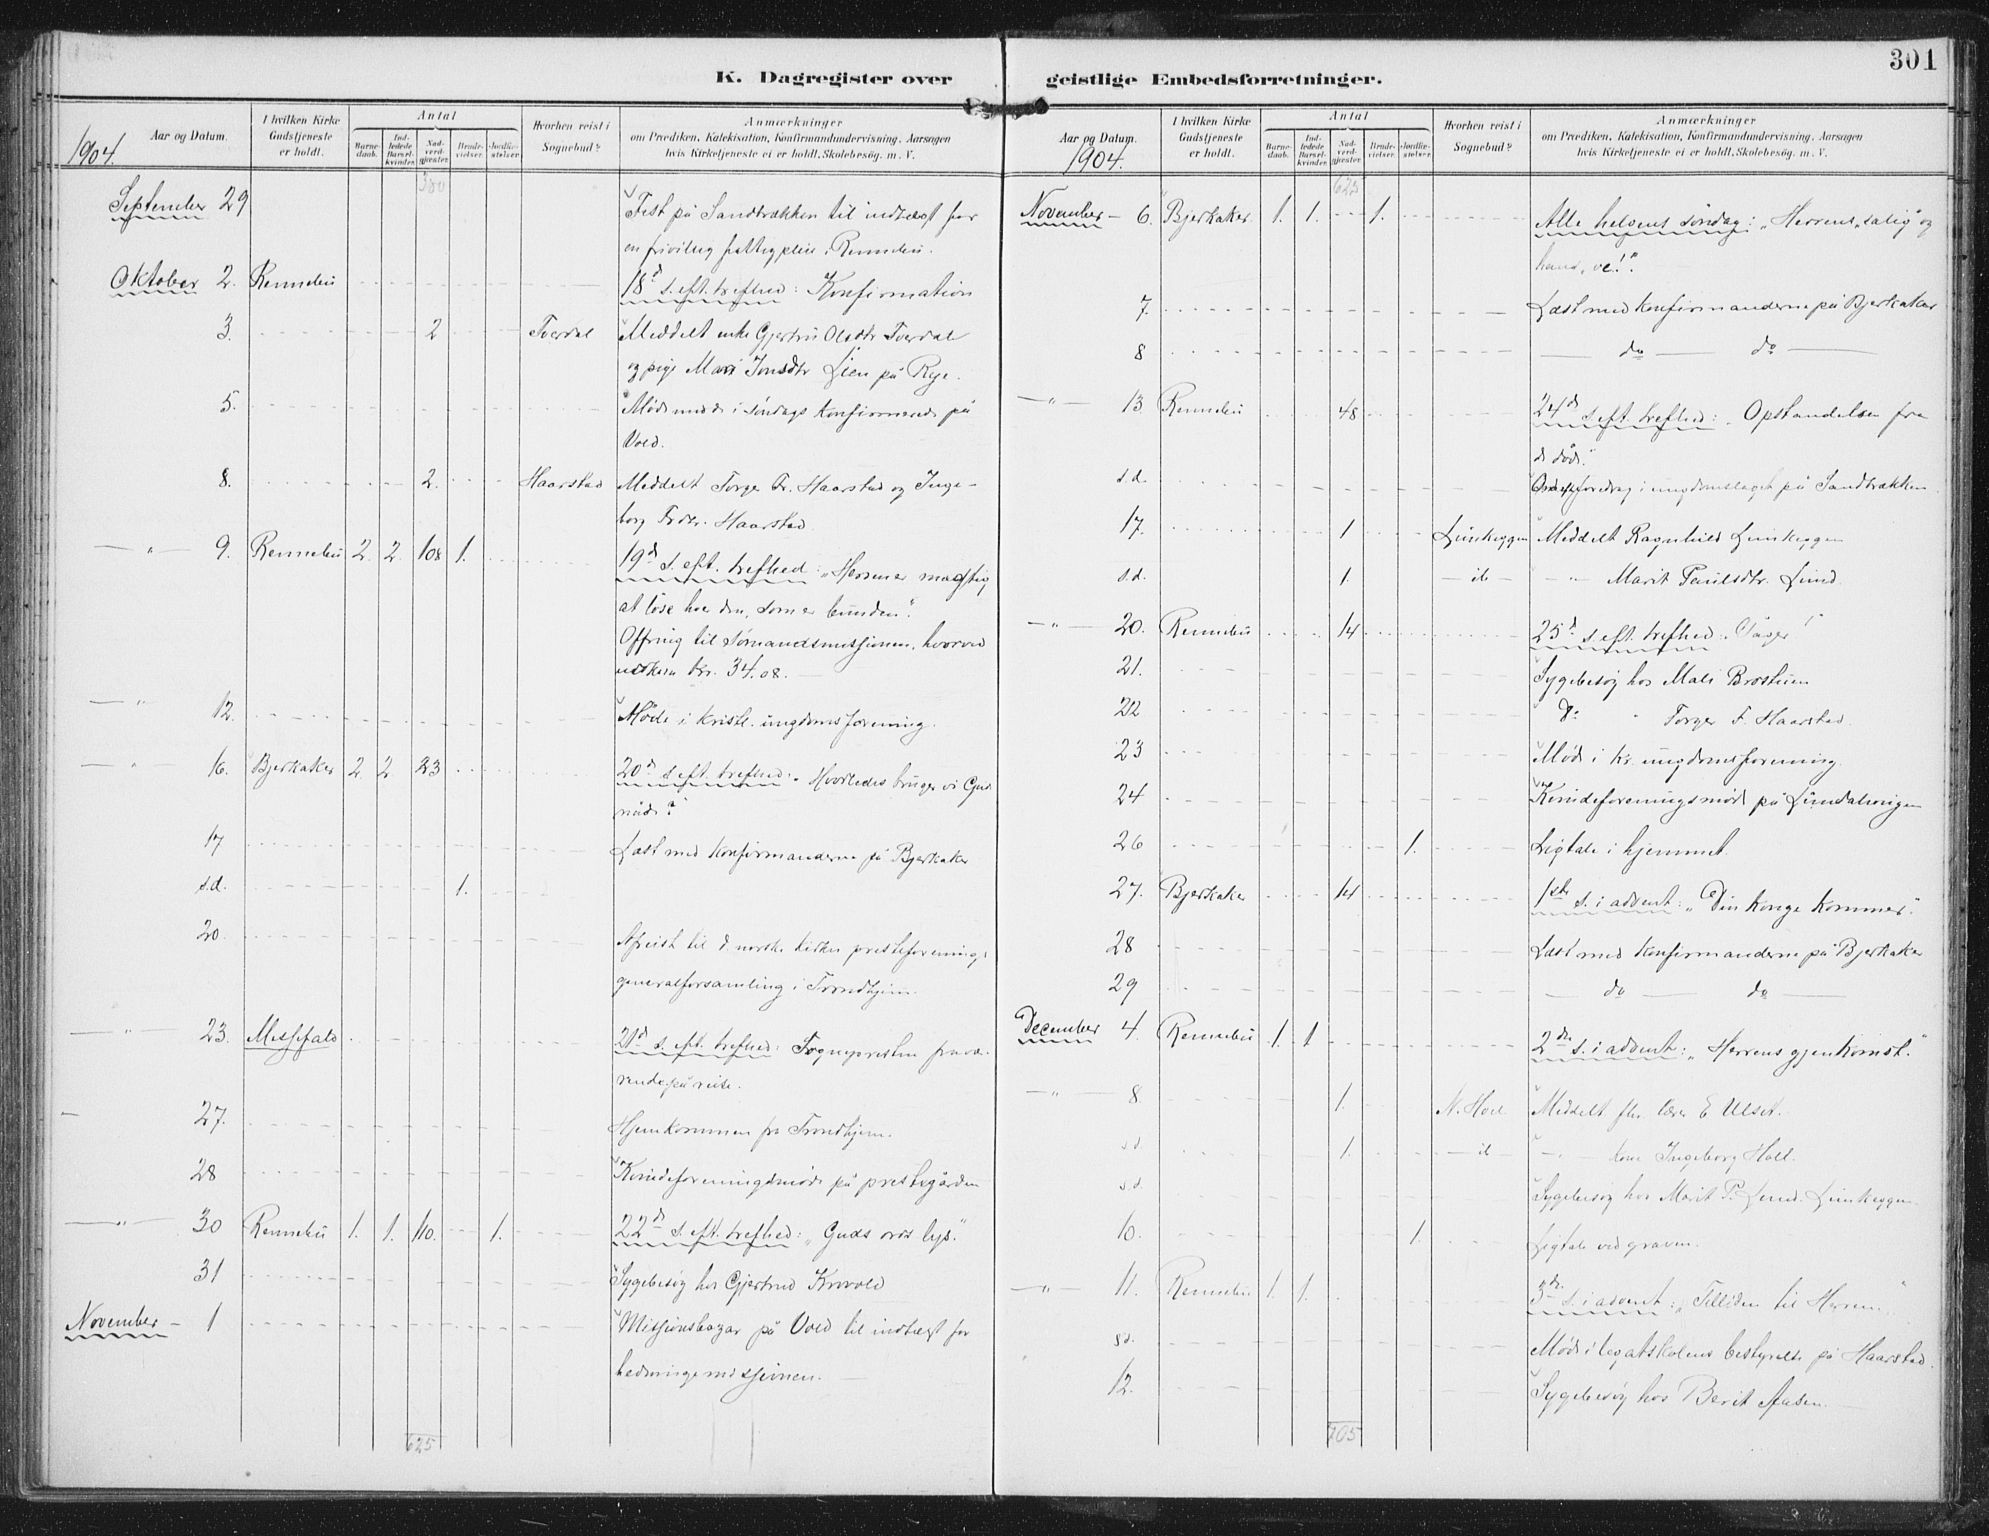 301
K. Dagregister over
geistlige Embedsforretninger.
Aar og Datum. I hvilken Kirke Gudstjeneste er holdt. Antal Barnedaab. Indledede Barselkvinder. Nadverdgjester. Brudevielser. Jordfæstelser. Hvorhen reist i Sognebud? Anmærkninger
om Prædiken, Katekisation, Konfirmandundervisning, Aarsagen
hvis Kirketjeneste ei er holdt, Skolebesøg. m. V.
1904.
380
September 29 Fest på Sandbrækken til indtægt for
en frivillig fattigpleie i Rennebu.
Oktober 2. Rennebu 18d s. eft. trefhed: Konfirmation
3. 2 Tverdal Meddelt enke Gjertru Olsdtr Tverdal
og pige Mari Jonsdtr Lien på Rye.
5. Møde med de i søndags konfirmerede på
Vold.
8. 2. Haarstad Meddelt Torger Haarstad og Inge-
borg Haarstad
— " — 9. Rennebu 2. 2. 108 1. 19d s. eft. trefhed: "Herren er mægtig
at løse hver den, som er bunden".
Offring til Sømandsmissionen, hvorved
indkom kr. 34.08. —
— " — 12. Møde i kristl. ungdomsforening.
— " — 16. Bjerkaker 2. 2 23 20d s. eft. trefhed: "Hvorledes bruger vi Guds
nåde?"
17 Læst med konfirmanderne på Bjerkaker
s.d. 1.
20. Afreist til d norske kirkes presteforenings
generalforsamling i Trondhjem.
— " — 23. Messefald. 21d s. eft. trefhed: Sognepresten fravæ-
rende på reise.
27. Hjemkommen fra Trondhjem.
28 Kvindeforeningsmøde på prestegården
— " — 30 Rennebu 1. 1. 110. 1. 22d s. eft. trefhed: "Guds ords lys."
31 Sygebesøg hos Gjertrud Krovold
November — 1 Missionsbazar på Vold til indtægt for
hedningemissionen. —
625
Aar og Datum. I hvilken Kirke Gudstjeneste er holdt. Antal Barnedaab. Indledede Barselkvinder. Nadverdgjester. Brudevielser. Jordfæstelser. Hvorhen reist i Sognebud? Anmærkninger
om Prædiken, Katekisation, Konfirmandundervisning, Aarsagen
hvis Kirketjeneste ei er holdt, Skolebesøg. m. V.
1904.
625
November — 6. Bjerkaker 1. 1. 1. Alle helgens søndag: "Herrens "salig" og
hans "ve!".
7. Læst med konfirmanderne på Bjerkaker
8 — do — do —
— " — 13 Rennebu 48 24d s. eft. trefhed: "Opstandelsen fra
de døde."
s.d. foredrag i ungdomslaget på Sandbrækken
17. 1 Meddelt Ragnhild
s.d. 1. — id — — " — Marit Paulsdtr. Lund
— " — 20. Rennebu 14 25d s. eft. trefhed.
21. Sygebesøg hos Mali
22 Do " Torger F. Haarstad.
23 Møde i kr. ungdomsforening.
24 Kvindeforeningsmøde på
26 1. Ligtale i hjemmet.
27. Bjerkaker 14 1ste s. i advent: "Din konge kommer".
28 Læst med konfirmanderne på Bjerkaker
29 — do — do —
December 4. Rennebu 1. 1 2den s. i advent: "Herrens gjenkomst."
— " — 8. 1. N. Hoel Meddelt fhv. lærer E Ulset.
s.d. 1. — id — " kone Ingeborg Hoel.
s.d. Sygebesøg hos Marit P. Lund.
10. 1. Ligtale ved graven.
— " — 11. Rennebu 1. 1. 3de s. i advent: "Tilliden til Herren"
s.d. Møde i legatskolens bestyrelse på Haarstad.
12. Sygebesøg hos Berit Aasen. —
705